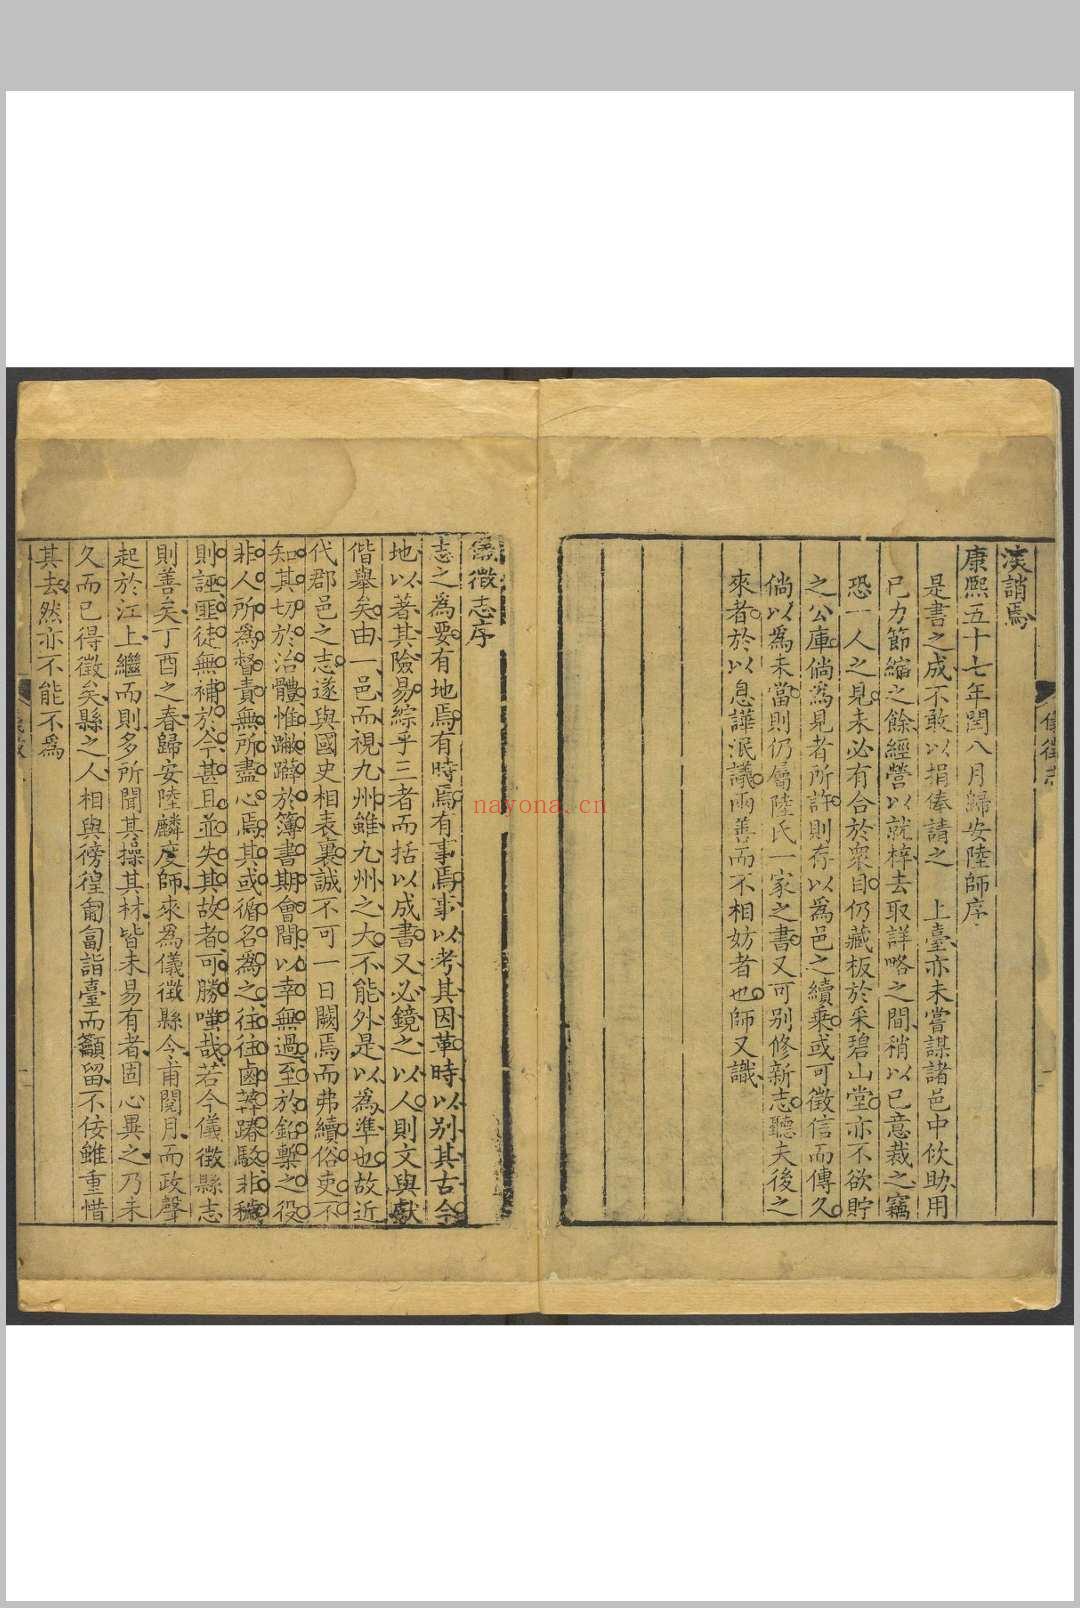 淡誚焉
康熙五十七年閏八月歸安陸師序
是書之成不敢以捐俸請之　上臺亦未嘗謀諸邑中佽助用
己力節縮之餘經營以就梓去取詳略之間稍以己意裁之竊
恐一人之見未必有合於衆目仍藏板於采碧山堂亦不欲貯
之公庫倘為見者所許則存以為邑之續乘或可徵信而傳久
倘以為未當則仍屬陸氏一家之書又可别修新志聽夫後之
來者於以息譁泯議兩善而不相妨者也師又識
儀徵志序
志之為要有地焉有時焉有事焉事以考其因革時以别其古今
地以著其險易綜乎三者而括以成書又必鏡之以人則文與獻
偕舉矣由一邑而視九州雖九州之大不能外是以為準也故近
代郡邑之志遂與國史相表裏誠不可一日闕焉而弗續俗吏不
知其切於治體惟蹴躃於簿書期會間以幸無過至於鉛槧之役
非人所為督責無所盡心焉其或循名為之往往鹵莽踳駁非穢
則誣匪徒無補於今甚且並失其故者可勝嗤哉若今儀徵縣志
則善矣丁酉之春歸安陸麟度師來為儀徵縣令甫閱月而政聲
起於江上繼而則多所聞其操其材皆未易有者固心異之乃未
久而已得徵矣縣之人相與徬徨匍匐詣臺而籲留不佞雖重惜
其去然亦不能不為
儀徵志
nayona.cn